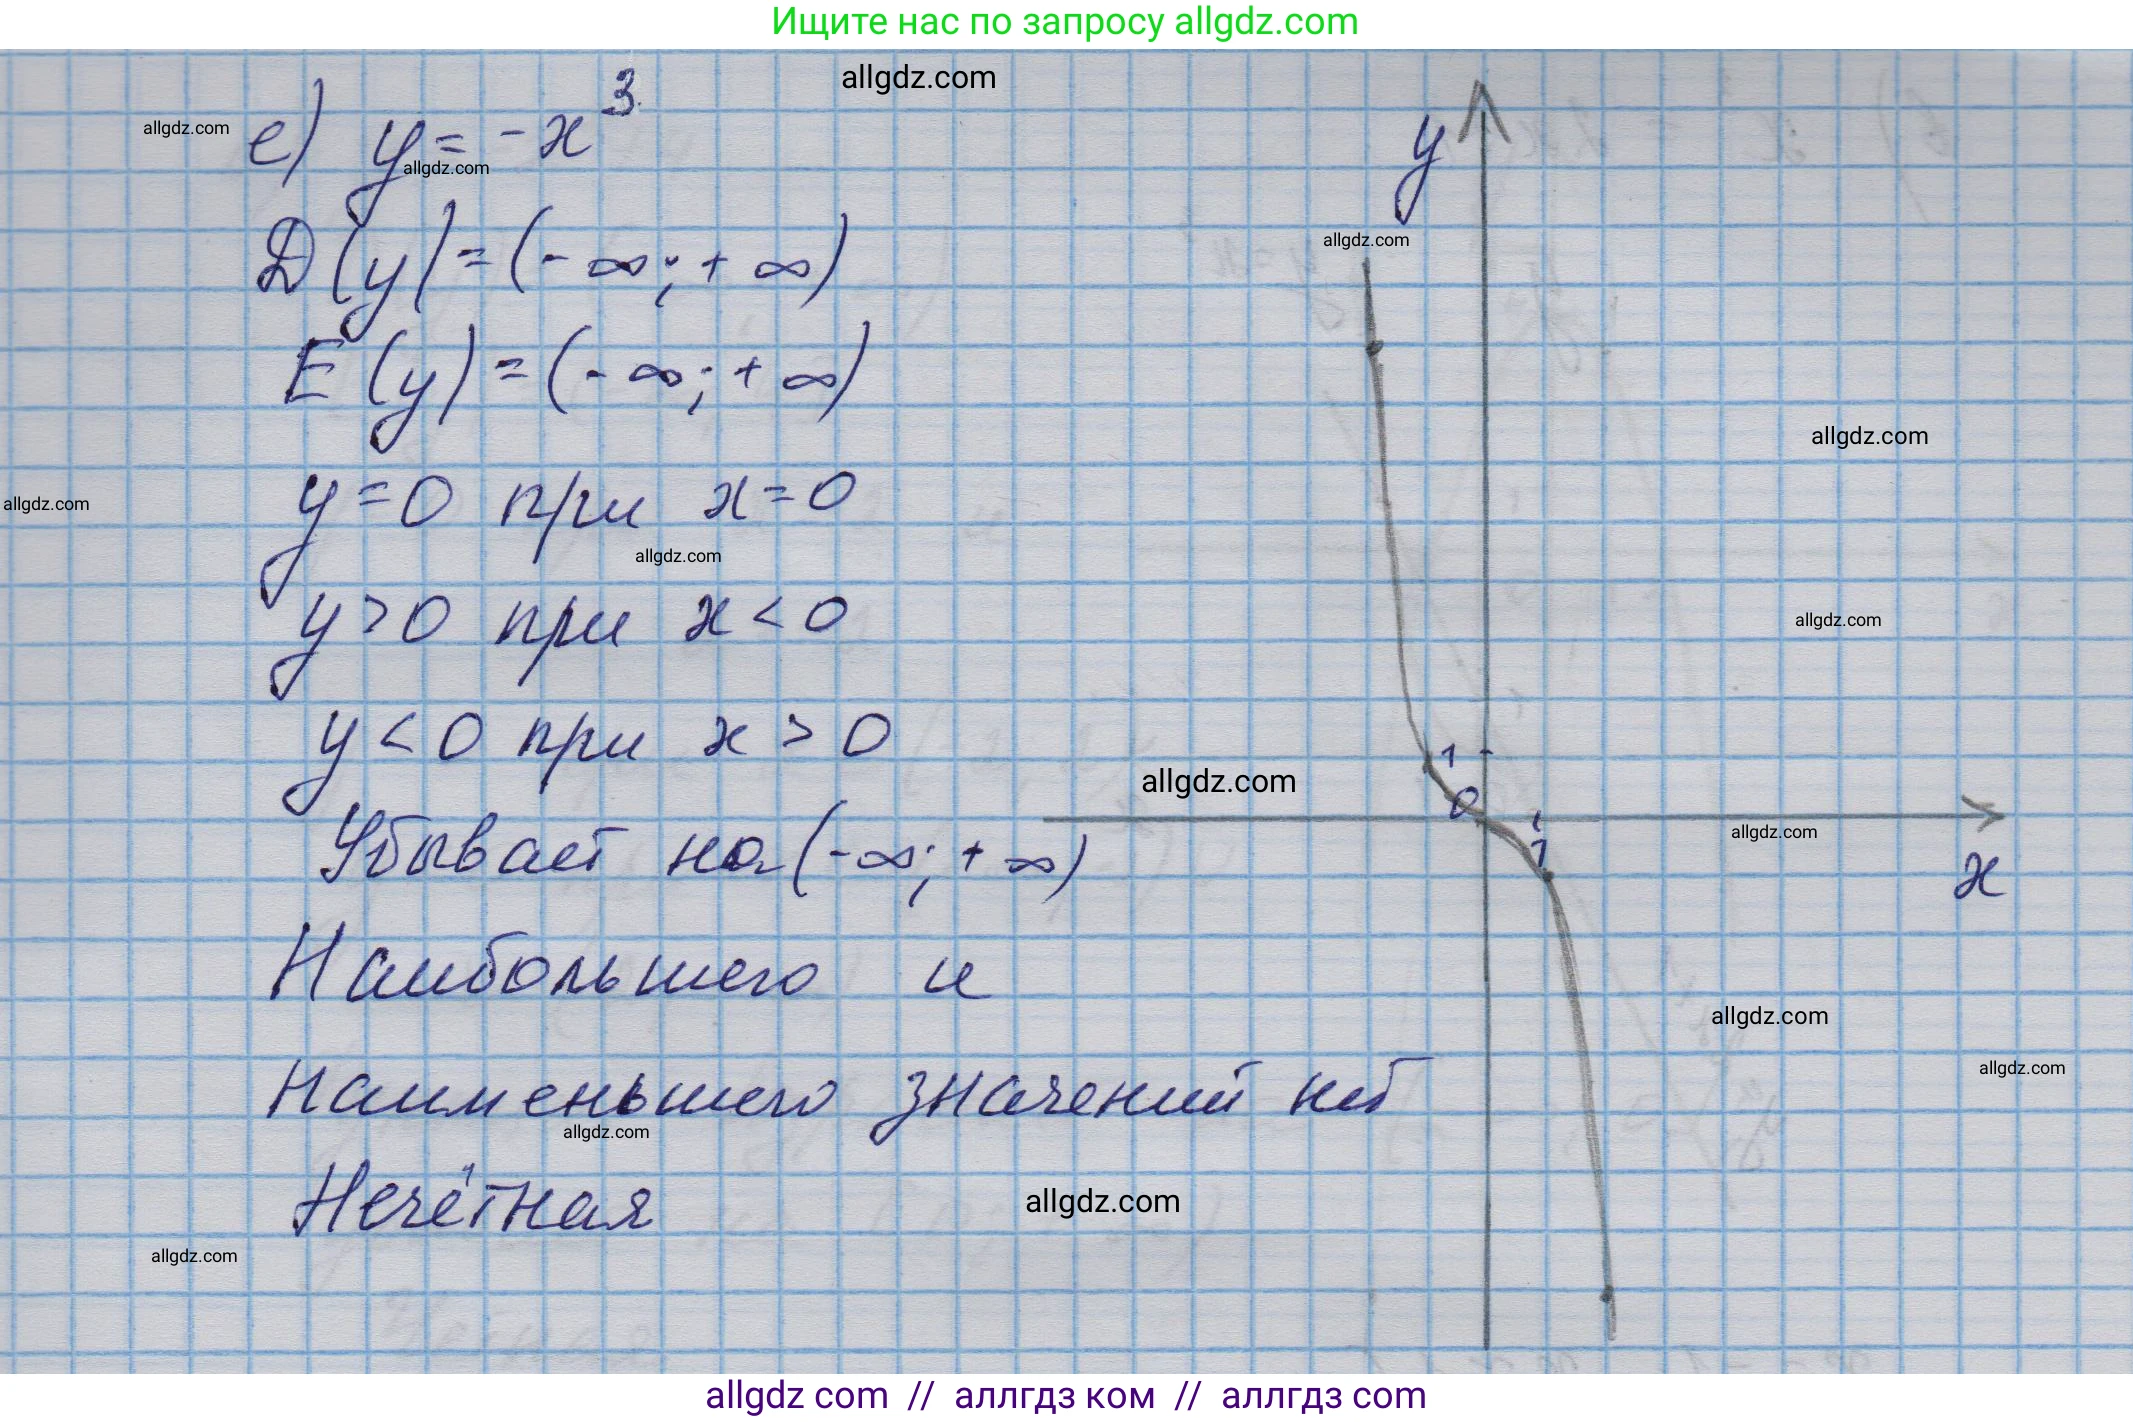 Ищите нас по запросу allgdz.com
allgdz.com
allgdz.com
е) y = -x³
allgdz.com
D(y) = (-∞; +∞)
allgdz.com
E(y) = (-∞; +∞)
allgdz.com
y = 0 при x = 0
allgdz.com
allgdz.com
y > 0 при x < 0
allgdz.com
y < 0 при x > 0
allgdz.com
Убывает на (-∞; +∞)
allgdz.com
Наибольшего и
allgdz.com
наименьшего значений нет
allgdz.com
allgdz.com
Нечётная
allgdz.com
allgdz.com
y
1
0
1
1
x
allgdz com // аллгдз ком // аллгдз com